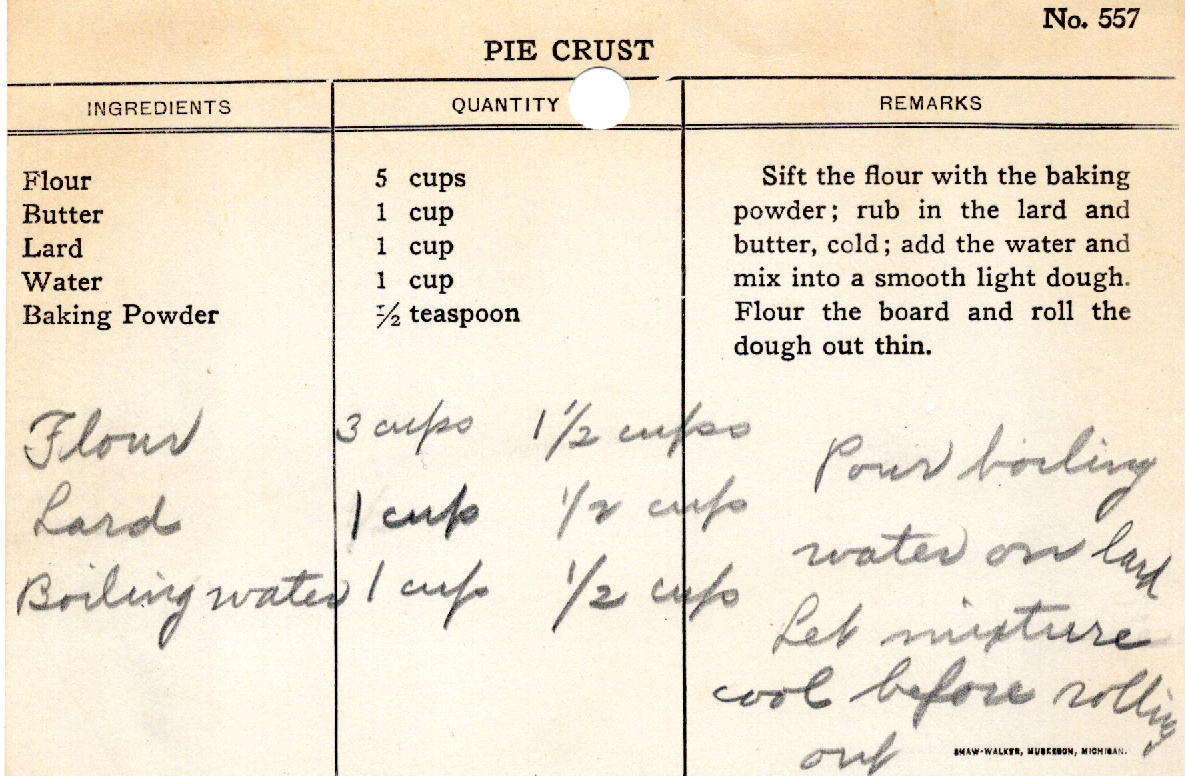 No. 557
PIE CRUST
INGREDIENTS QUANTITY REMARKS
Flour 5 cups
Butter 1 cup
Lard 1 cup
Water 1 cup
Baking Powder ½ teaspoon
Sift the flour with the baking
powder; rub in the lard and
butter, cold; add the water and
mix into a smooth light dough.
Flour the board and roll the
dough out thin.
Flour 3 cups 1 1/2 cups
Lard 1 cup 1/2 cup
Boiling water 1 cup 1/2 cup
Pour boiling
water on lard
Let mixture
cool before rolling
out
SHAW-WALKER, MUSKEGON, MICHIGAN.